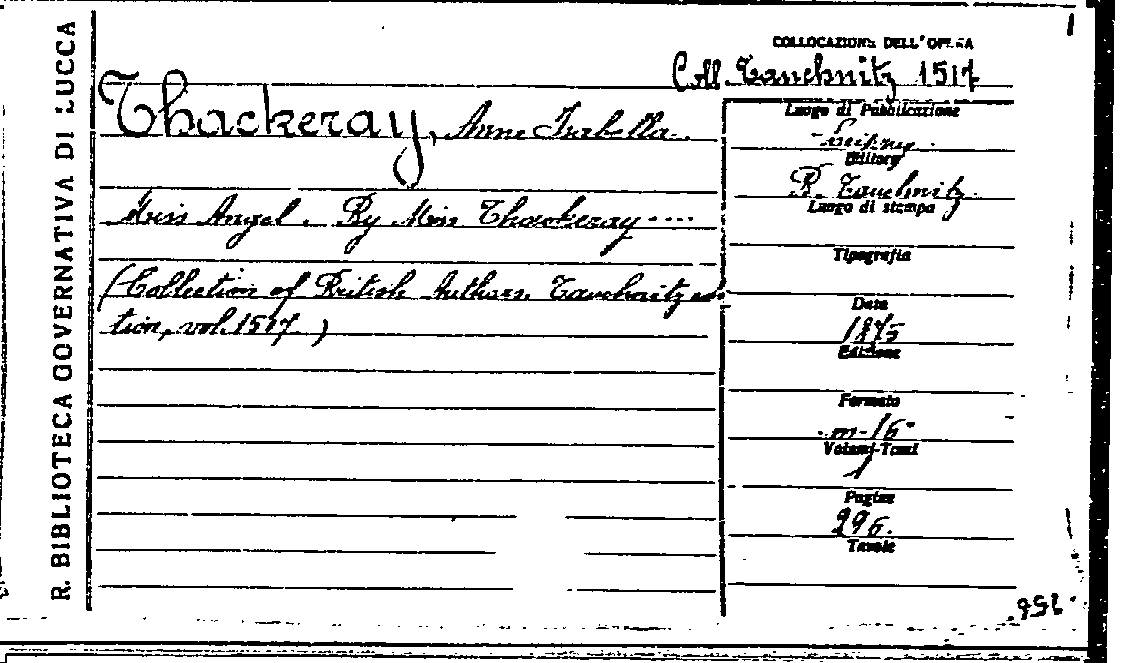 R. BIBLIOTECA GOVERNATIVA DI LUCCA
COLLOCAZIONE DELL'OPERA
Coll. Tauchnitz 1517
Thackeray, Anne Isabella.
Miss Angel. By Miss Thackeray ....
(Collection of British Authors. Tauchnitz edi-
tion, vol. 1517.)
Luogo di Pubblicazione
Leipzig
Editore
B. Tauchnitz
Luogo di stampa
Tipografia
Data
1875
Edizione
Formato
in-16°
Volumi-Tomi
1
Pagine
296.
Tavole